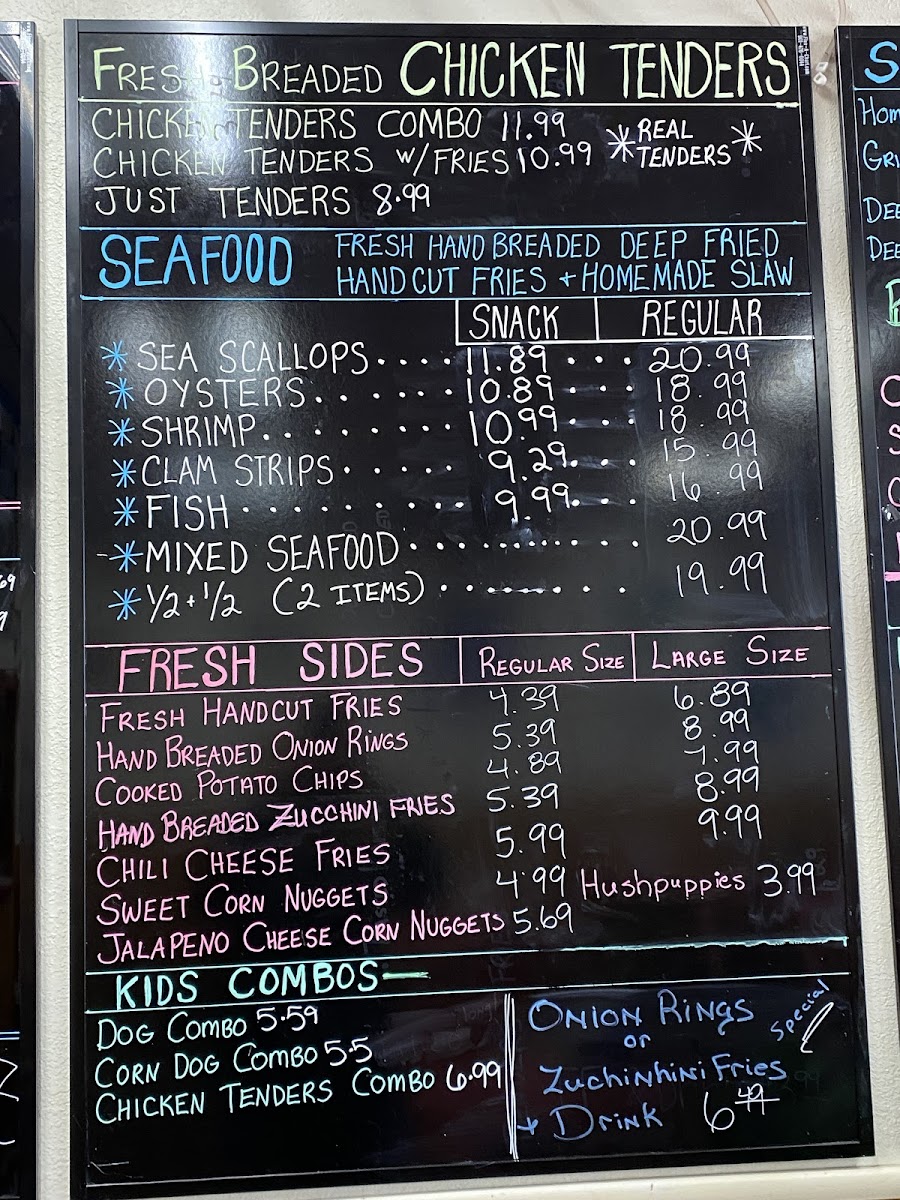 FRESH BREADED CHICKEN TENDERS
CHICKEN TENDERS COMBO 11.99
CHICKEN TENDERS W/FRIES 10.99
* REAL TENDERS *
JUST TENDERS 8.99
SEAFOOD
FRESH HAND BREADED DEEP FRIED
HANDCUT FRIES + HOMEMADE SLAW
SNACK REGULAR
* SEA SCALLOPS.... 11.89 ... 20.99
* OYSTERS....... 10.89 .... 18.99
* SHRIMP....... 10.99 ... 18.99
* CLAM STRIPS..... 9.29... 15.99
* FISH ........ 9.99... 16.99
* MIXED SEAFOOD.......... 20.99
* 1/2 + 1/2 (2 ITEMS)......... 19.99
FRESH SIDES REGULAR SIZE LARGE SIZE
FRESH HANDCUT FRIES 4.39 6.89
HAND BREADED ONION RINGS 5.39 8.99
COOKED POTATO CHIPS 4.89 7.99
HAND BREADED ZUCCHINI FRIES 5.39 8.99
CHILI CHEESE FRIES 5.99 9.99
SWEET CORN NUGGETS 4.99 Hushpuppies 3.99
JALAPENO CHEESE CORN NUGGETS 5.69
KIDS COMBOS
DOG COMBO 5.59
CORN DOG COMBO 5.5
CHICKEN TENDERS COMBO 6.99
ONION RINGS
or
ZuchiNhiNi Fries
+ DRINK 6 49
Special